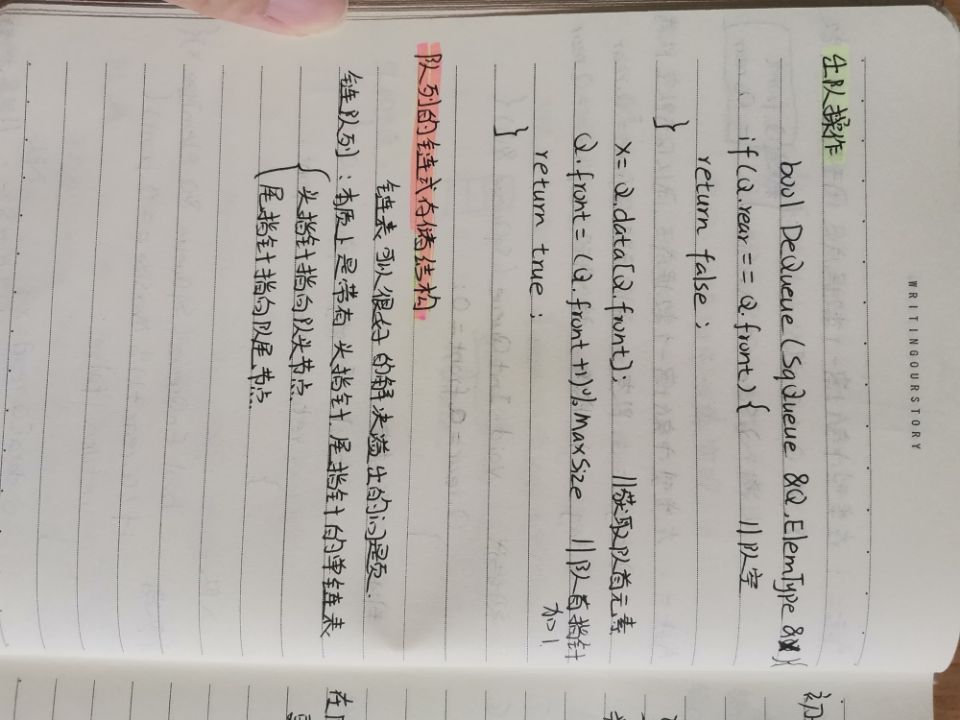 WRITINGOURSTORY
出队操作
bool DeQueue(SqQueue &Q,ElemType &x){
if(Q.rear == Q.front){ //队空
return false;
}
x = Q.data[Q.front]; //获取队首元素
Q.front = (Q.front+1)%MaxSize //队首指针加1
return true;
}
队列的链式存储结构
链表可以很好的解决溢出的问题.
链队列：本质上是带有头指针.尾指针的单链表
{头指针指向队头节点
尾指针指向队尾节点
初
在